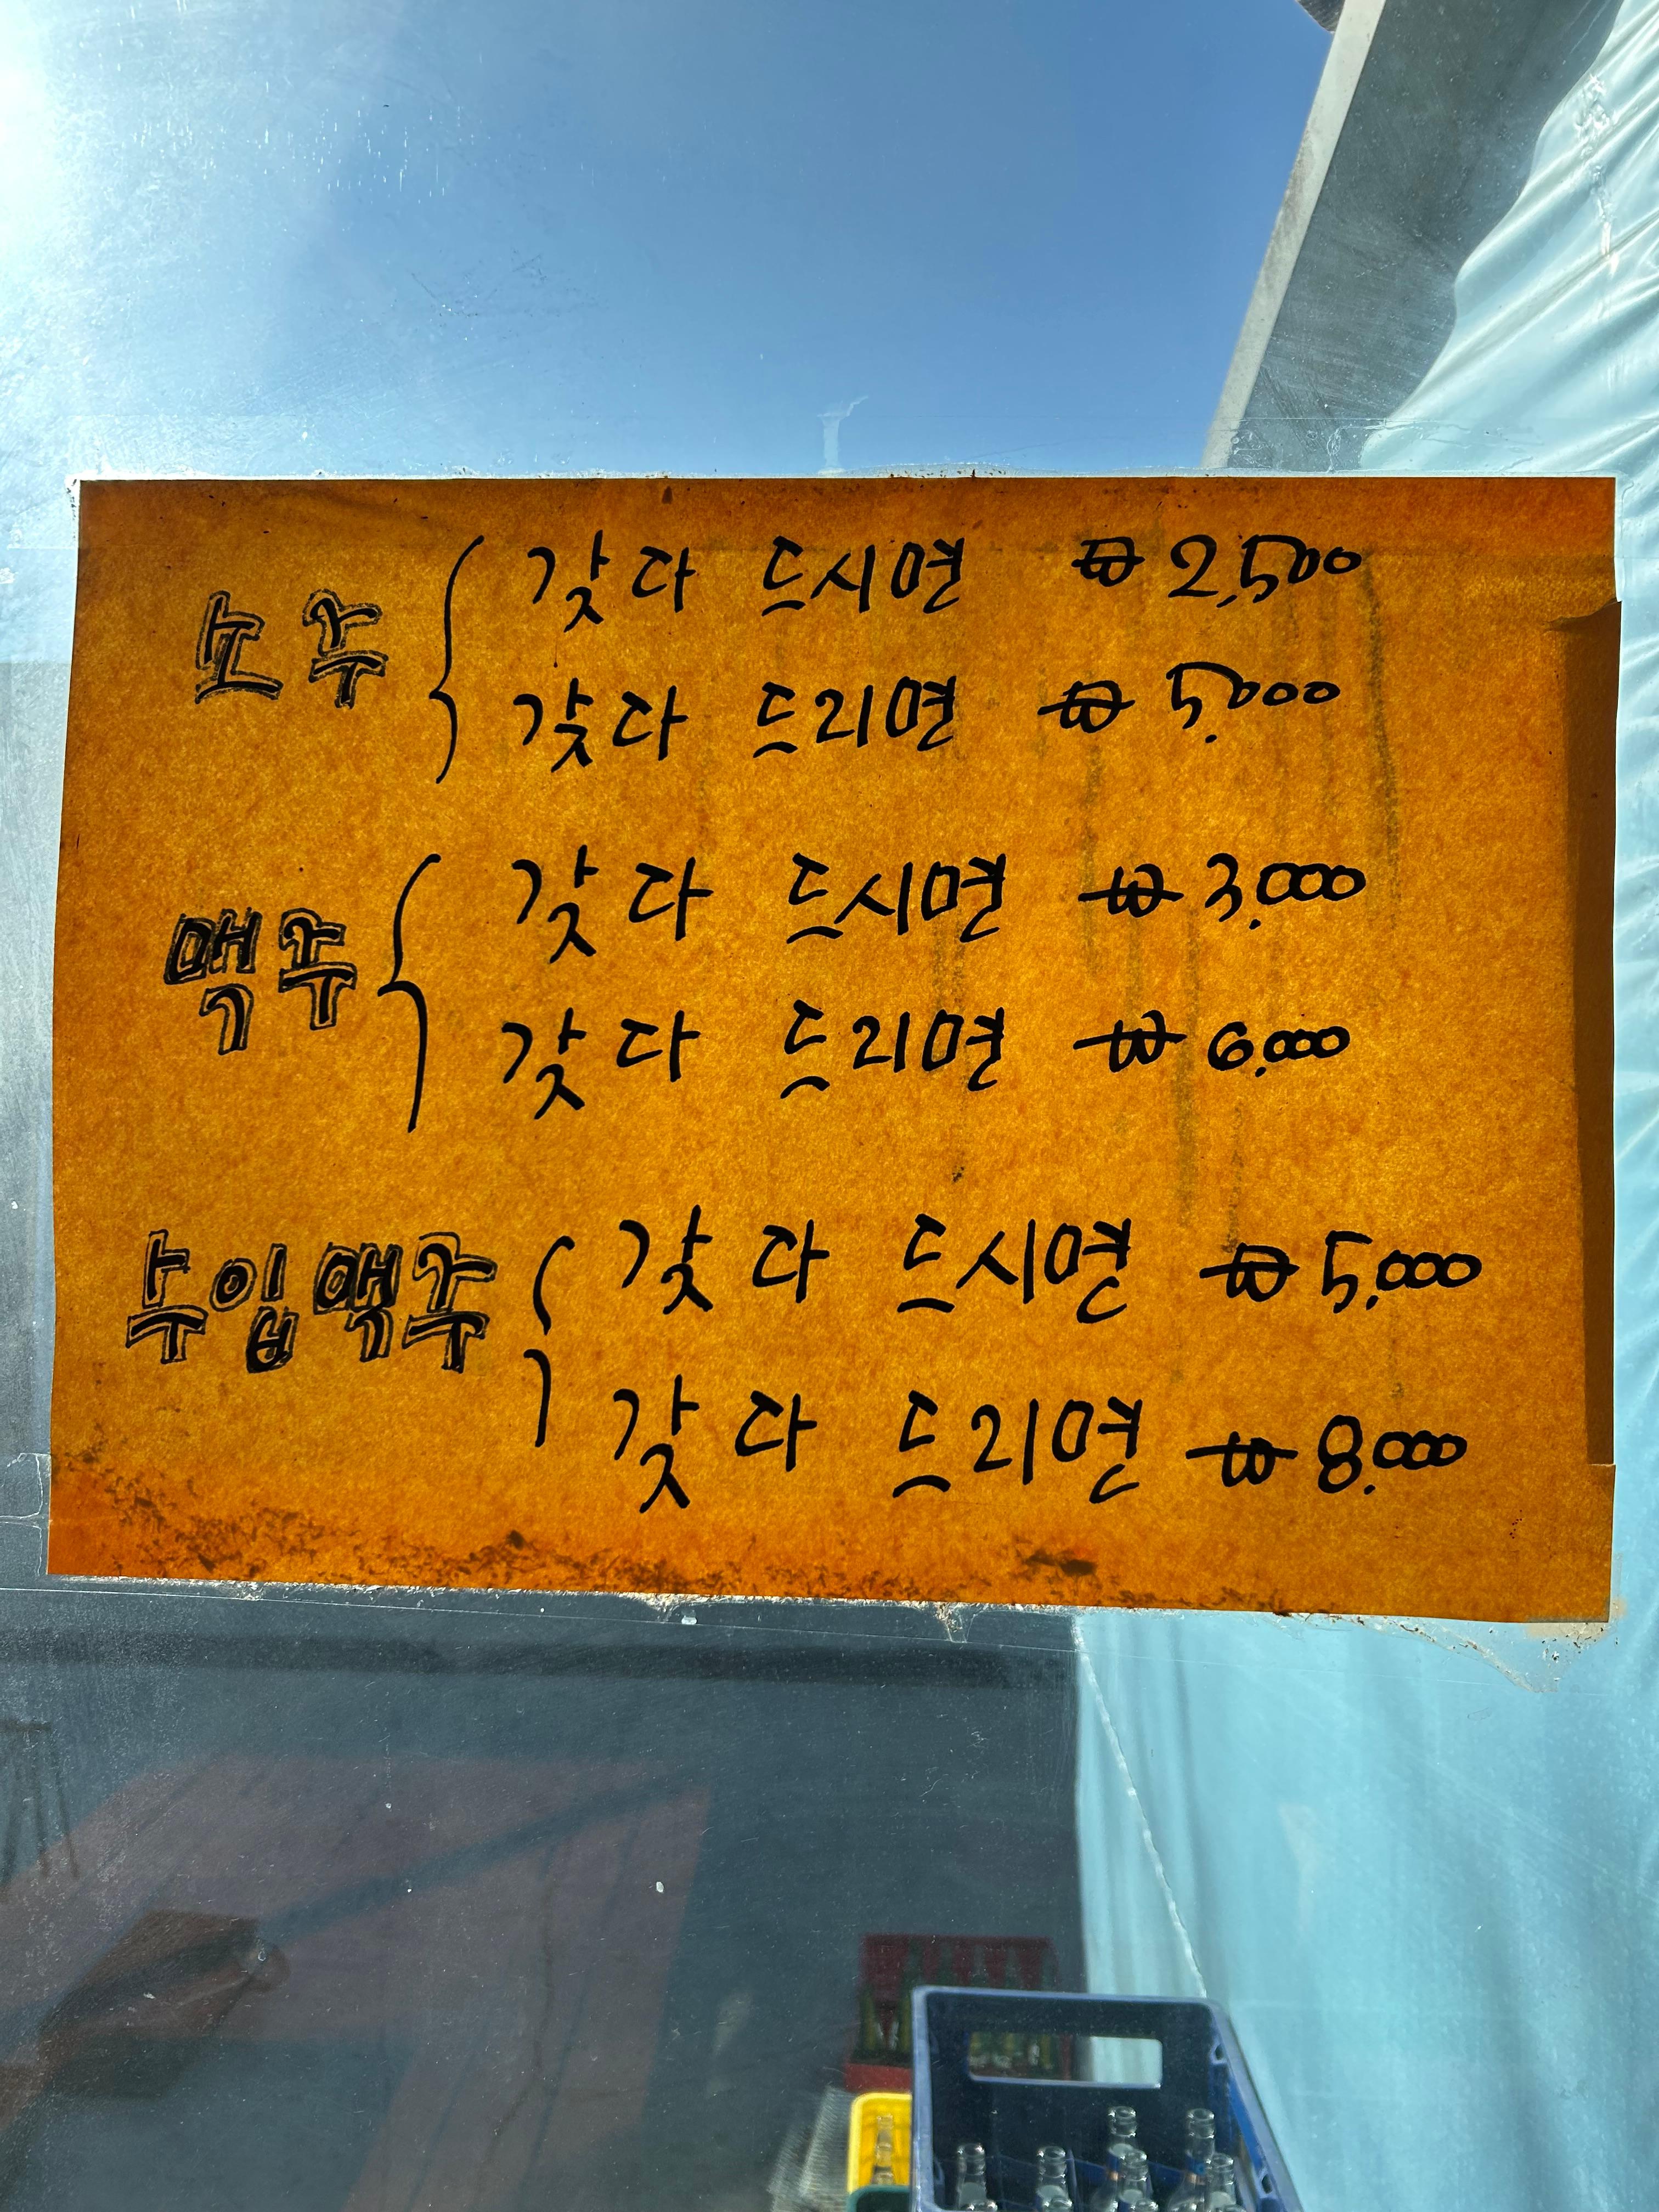 소주 { 갖다 드시면 ₩ 2,500
갖다 드리면 ₩ 5,000
맥주 { 갖다 드시면 ₩ 3,000
갖다 드리면 ₩ 6,000
수입맥주 { 갖다 드시면 ₩ 5,000
갖다 드리면 ₩ 8,000